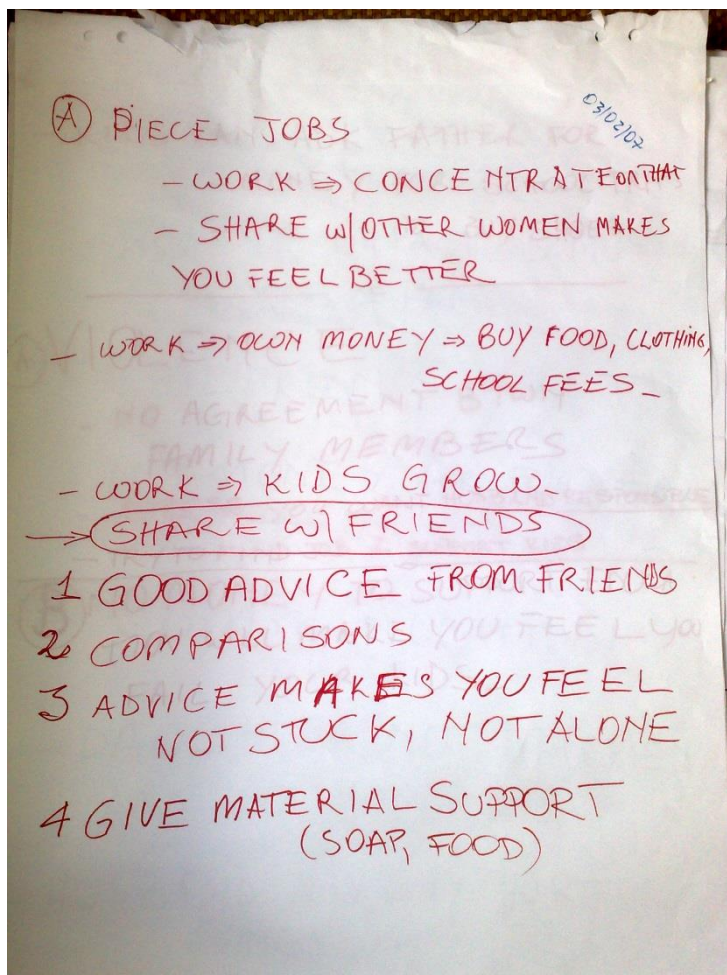 03/02/07
Ⓐ PIECE JOBS
- WORK ⇒ CONCENTRATE ON THAT
- SHARE W/ OTHER WOMEN MAKES
YOU FEEL BETTER
- WORK ⇒ OWN MONEY ⇒ BUY FOOD, CLOTHING,
SCHOOL FEES -
- WORK ⇒ KIDS GROW
→ SHARE W/ FRIENDS
1 GOOD ADVICE FROM FRIENDS
2 COMPARISONS
3 ADVICE MAKES YOU FEEL
NOT STUCK, NOT ALONE
4 GIVE MATERIAL SUPPORT
(SOAP, FOOD)